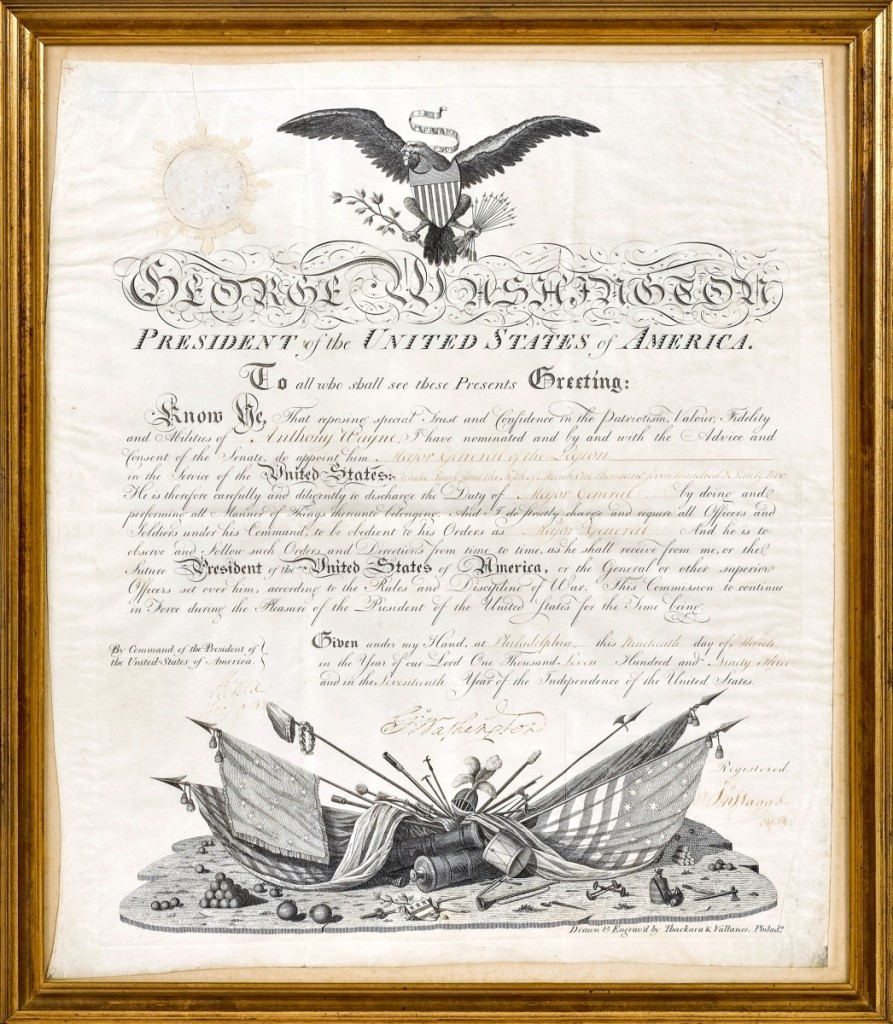 GEORGE WASHINGTON,
PRESIDENT of the UNITED STATES of AMERICA.
To all who shall see these Presents Greeting:
Know Ye, That reposing special Trust and Confidence in the Patriotism, Valour, Fidelity
and Abilities of Anthony Wayne, I have nominated and by and with the Advice and
Consent of the Senate, do appoint him Major General of the Legion
in the Service of the United States: to take Rank from the fifth of March One thousand seven hundred & Ninety two
He is therefore carefully and diligently to discharge the Duty of Major General by doing and
performing all Manner of Things thereunto belonging. And I do strictly charge and require all Officers and
Soldiers under his Command, to be obedient to his Orders as Major General And he is to
observe and follow such Orders and Directions from time to time, as he shall receive from me, or the
future President of the United States of America, or the General or other superior
Officers set over him, according to the Rules and Discipline of War. This Commission to continue
in Force during the Pleasure of the President of the United States for the Time being.
Given under my Hand, at Philadelphia this Nineteenth day of March
By Command of the President of
the United States of America.
in the Year of our Lord One Thousand Seven Hundred and Ninety three
and in the Seventeenth Year of the Independence of the United States.
Go Washington
Registered
Drawn & Engrav'd by Thackara & Vallance, Philada.